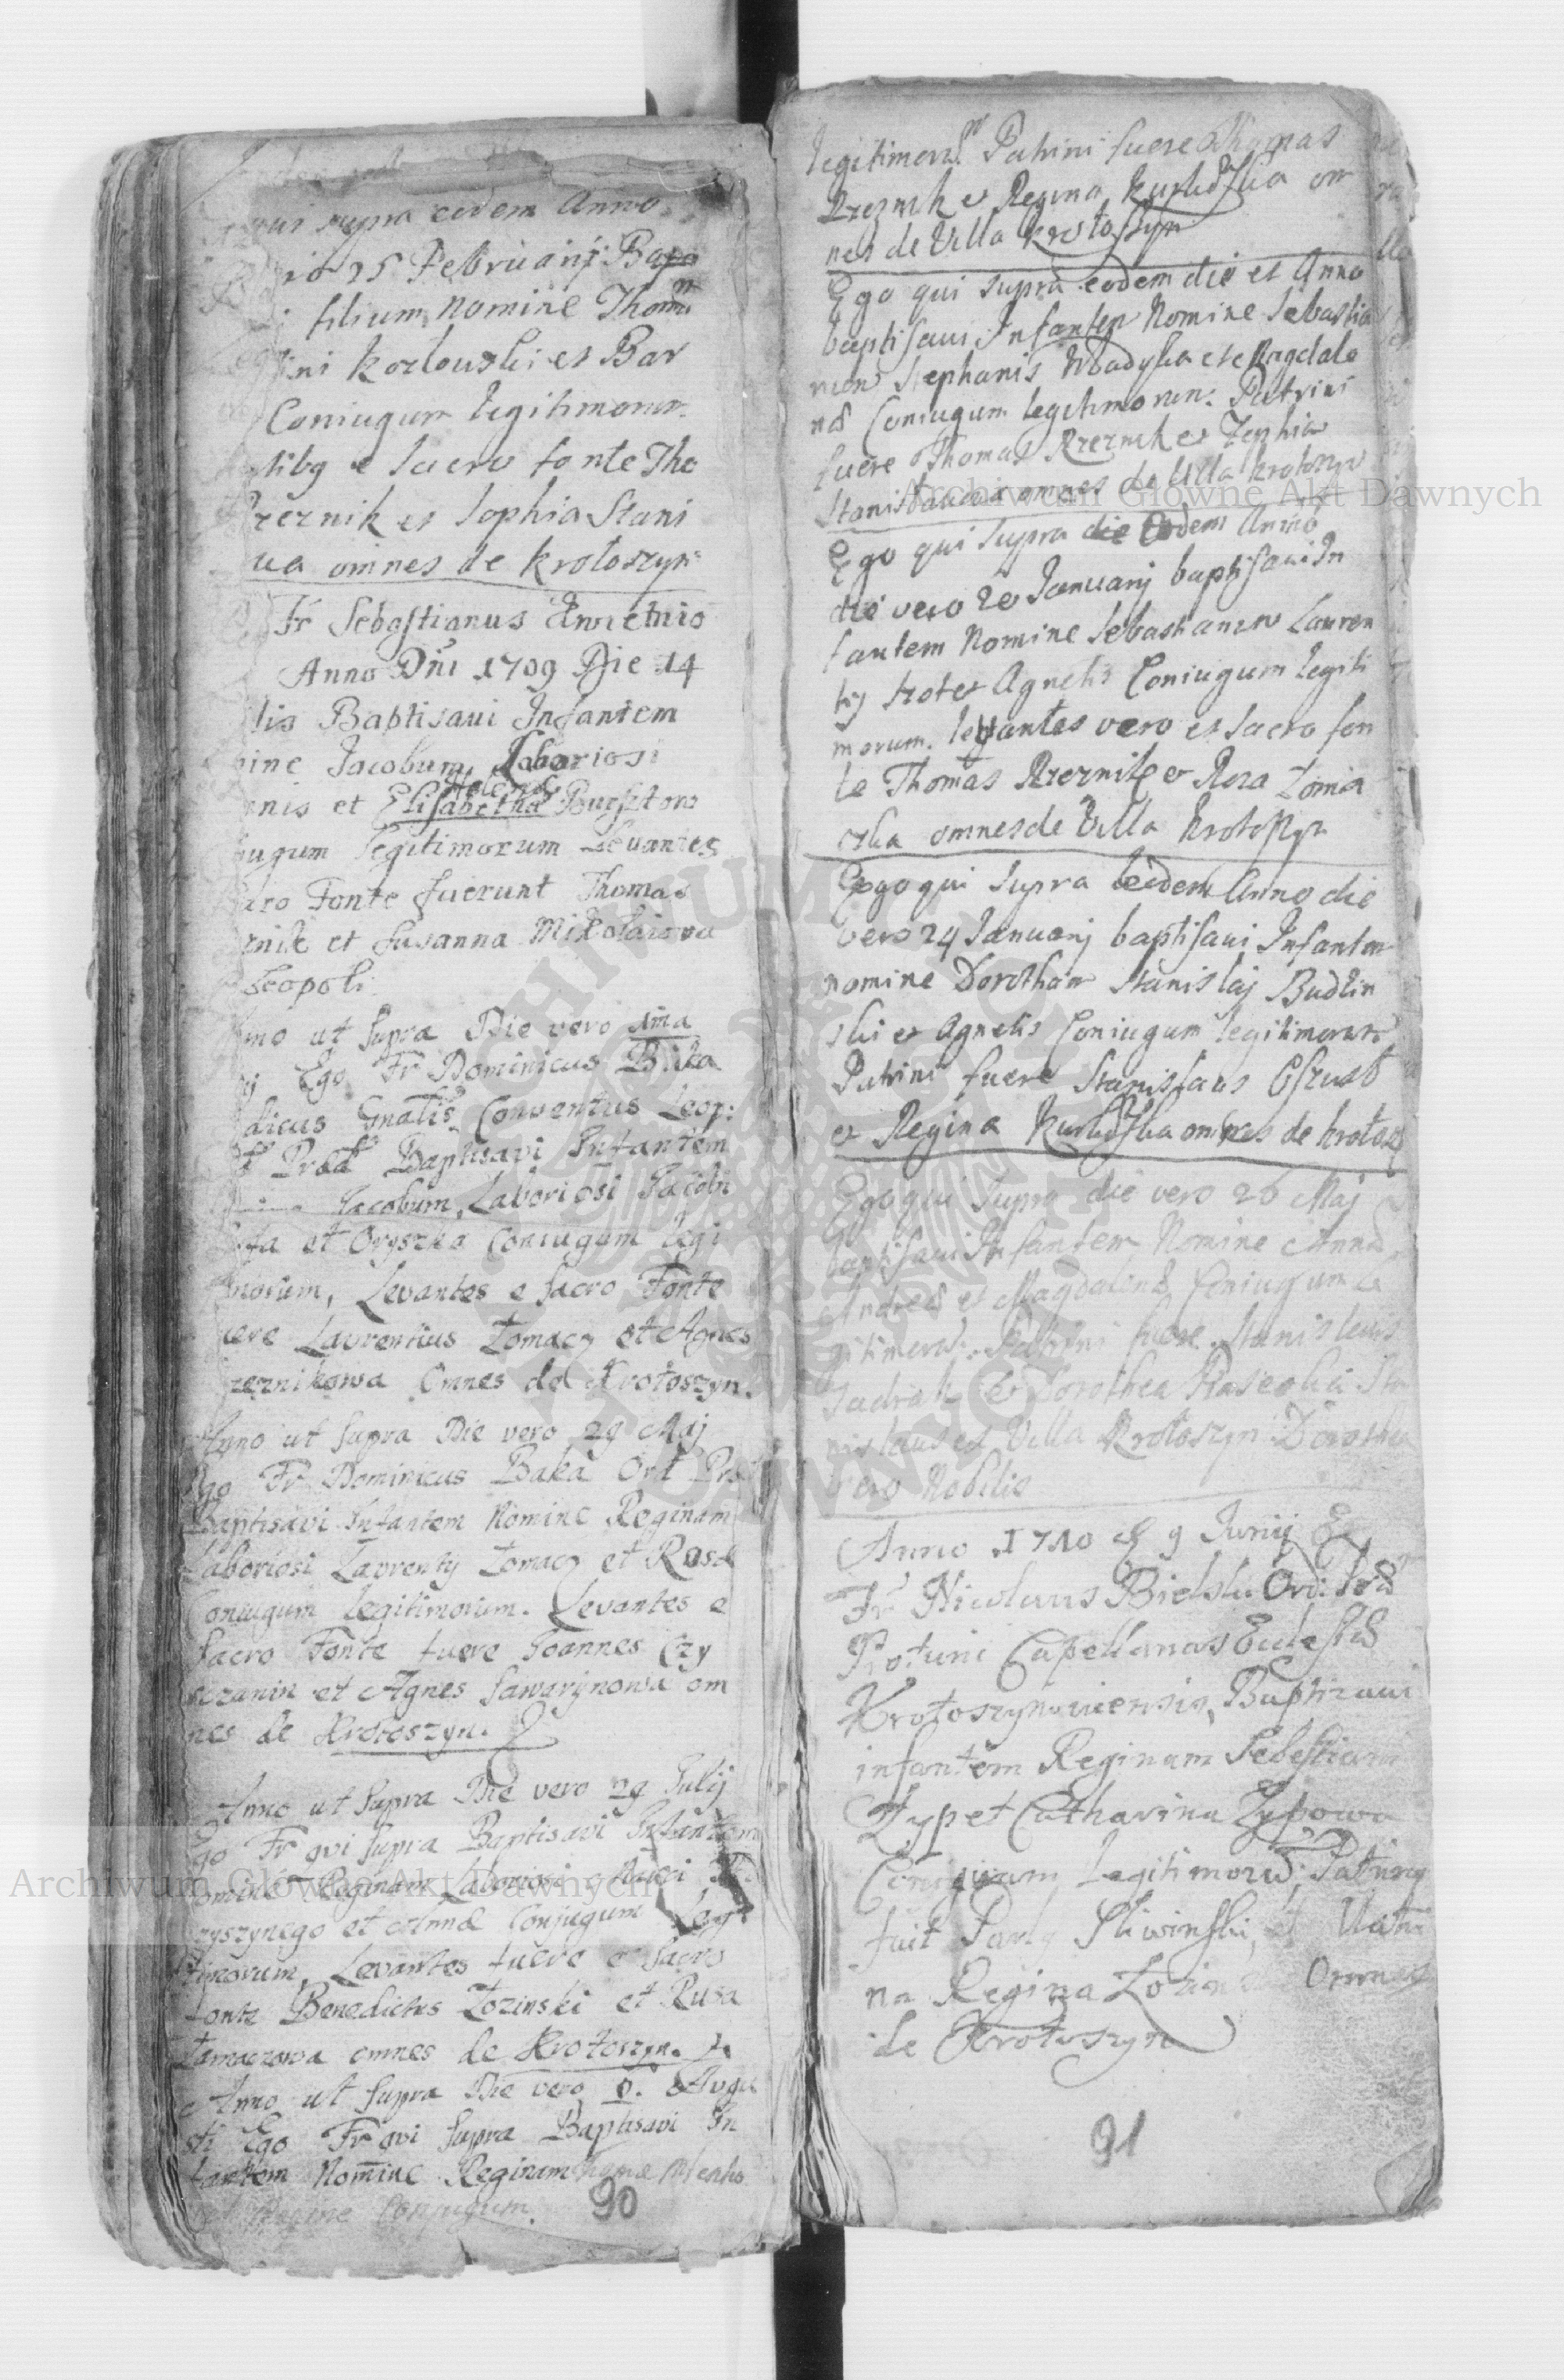 qui supra eodem Anno
rio 25 Februarij Bap
filium Nomine Thomam
ni Kozlowski et Bar
Coniugum legitimorum
tibq e sacro fonte Tho
rzeznik et Sophia Stani
ua omnes de Krotoszyn
Fr Sebastianus
Anno Dni 1709 Die 14
lis Baptisavi Infantem
ine Jacobum Laboriosi
Helena
nis et Elisabetha
iugum legitimorum Levantes
acro Fonte fuerunt Thomas
znik et Susanna Mikołaiowa
Leopoli
nno ut supra Die vero ima
ij Ego Fr Dominicus Baka
dicus Gnalis Conventus Leop:
Prad Baptisavi Infantem
Jacobum, Laboriosi Jacobi
et Oryszka Coniugum legi
morum, Levantes e sacro Fonte
uere Laurentius Tomacz et Agnes
rzeznikowa Omnes de Krotoszyn.
Anno ut supra Die vero 29 Maj
Ego Fr Dominicus Baka Ord Prd
Baptisavi Infantem Nomine Reginam
Laboriosi Laurentij Tomacz et Rosæ
Coniugum legitimorum. Levantes e
Sacro Fonte fuere Joannes Czy
szczanin et Agnes Sawarynowa om
nes de Krotoszyn.
Anno ut supra Die vero 29 Julij
Ego Fr qvi supra Baptisavi Infantem
omine Reginam Laboriosi
ryszynego et Annæ Conjugum Legi
timorum, Levantes fuere e sacro
fonte Benedictus Łozinski et Rusa
Tomaczowa omnes de Krotoszyn.
Anno ut supra Die vero Augu
sti Ego Fr qvi supra Baptisavi In
fantem Nomine Reginam
Conjugum.
90
legitimorum Patrini fuere Thomas
Rzeznik et Regina om
nes de Villa Krotoszyn
Ego qui supra eodem die et Anno
baptisaui Infantem Nomine Sebastia
num Stephanis et Magdale
næ Coniugum legitimorum: Patrini
fuere Thomas Rzeznik et Zophia
Stanisławowa omnes de Villa Krotoszyn
Ego qui supra die Eodem Anno
die vero 20 Januarij baptisaui In
fantem Nomine Sebastianum Lauren
tij et Agnetis Coniugum legiti
morum. levantes vero e sacro fon
te Thomas Rzeznik et Roza Tomia
czka omnes de Villa Krotoszyn
Ego qui supra eodem Anno die
vero 24 Januarij baptisaui Infantem
nomine Dorotham Stanislaj Budzin
ski et Agnetis Coniugum legitimorum
Patrini fuere Stanislaus
et Regina omnes de Krotosz
Ego qui supra die vero 26 Maj
baptisaui Infantem Nomine Anna
Andreæ et Magdalenæ Coniugum le
gitimorum. Patrini fuere Stanislaus
et Dorothea Sta
nislaus ex Villa Krotoszyn Dorothea
vero Nobilis
Anno 1710 9 Junij Ego
Fr Nicolaus Bielski Ord: Præd
Protunc Capellanus Ecclesiæ
Krotoszynouiensis, Baptizaui
infantem Reginam Sebestiani
Zyp et Catharina Zypowa
Coniugum Legitimorum; Patrinq
fuit Paulq Sliwinski, et Matri
na Regina Omnes
de Krotoszyn
91
Archiwum Główne Akt Dawnych
Archiwum Główne Akt Dawnych
ARCHIWUM GŁÓWNE AKT DAWNYCH